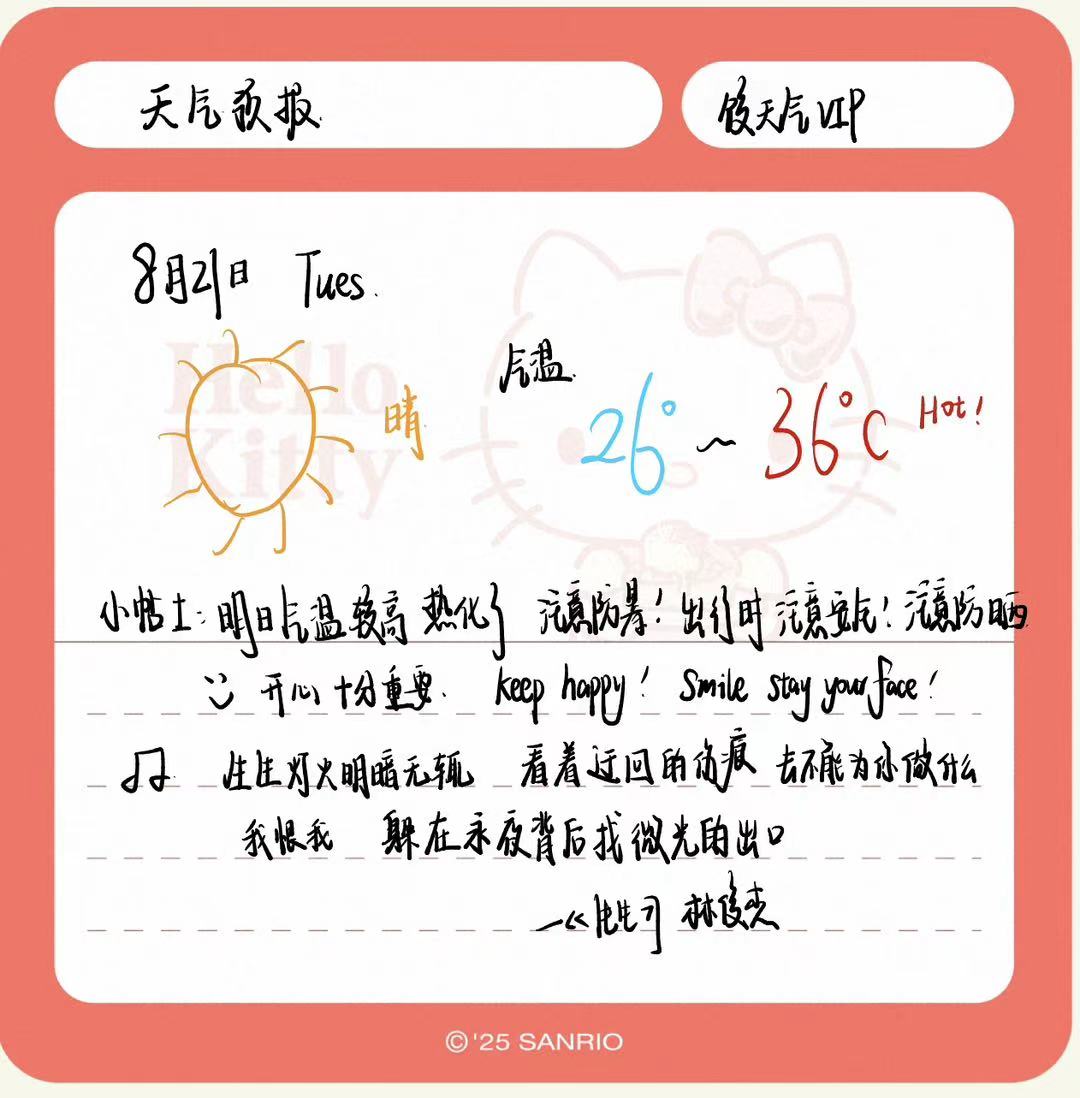 天气预报
俊天气VIP
8月21日 Tues.
Hello
Kitty
晴
气温
26° ~ 36°C Hot!
小帖士：明日气温较高 热化了 注意防暑！出行时注意安气！注意防晒
开心十分重要. keep happy！ Smile stay your face！
生生灯火明暗无辄 看着迂回的伤痕 却不能为你做什么
我恨我 躲在永夜背后找微光的出口
—《生生》 林俊杰
©'25 SANRIO